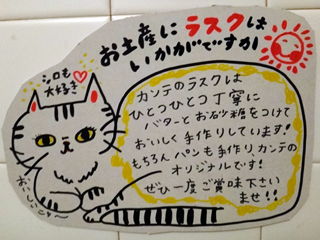 お土産にラスクは
いかがですか
シロも
大好き
カンテのラスクは
ひとつひとつ丁寧に
バターとお砂糖をつけて
おいしく手作りしています!
もちろんパンも手作りカンテの
オリジナルです!
ぜひ一度ご賞味下さい
ませ!!
おいしいニャ〜